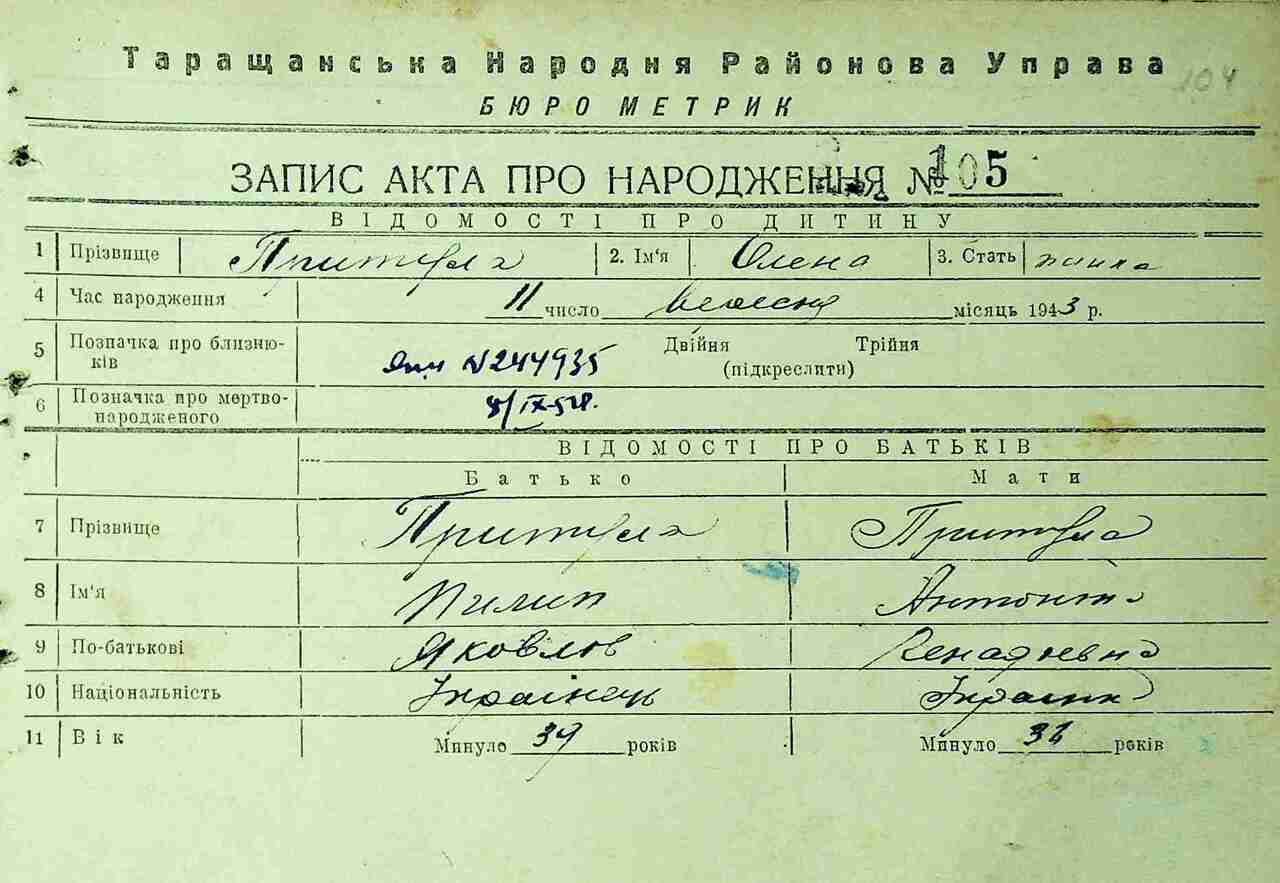 104
Таращанська Народня Районова Управа
БЮРО МЕТРИК
ЗАПИС АКТА ПРО НАРОДЖЕННЯ № 105
ВІДОМОСТІ ПРО ДИТИНУ
1 Прізвище Притула 2. Ім'я Олена 3. Стать
4 Час народження 11 число вересня місяць 1943 р.
5 Позначка про близню-ків Двійня Трійня
(підкреслити)
N 244935
6 Позначка про мертво-народженого
ВІДОМОСТІ ПРО БАТЬКІВ
Батько Мати
7 Прізвище Притула Притула
8 Ім'я Пилип Антоніна
9 По-батькові Яковлов Генадіевна
10 Національність Українець Українка
11 Вік Минуло 39 років Минуло років